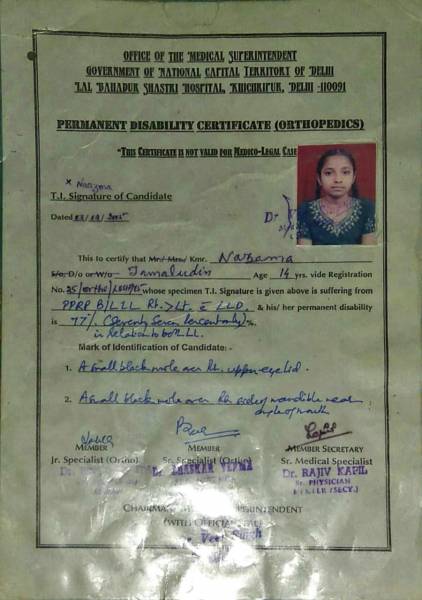 OFFICE OF THE MEDICAL SUPERINTENDENT
GOVERNMENT OF NATIONAL CAPITAL TERRITORY OF DELHI
LAL BAHADUR SHASTRI HOSPITAL, KHICHRIPUR, DELHI -110091
PERMANENT DISABILITY CERTIFICATE (ORTHOPEDICS)
*THIS CERTIFICATE IS NOT VALID FOR MEDICO-LEGAL CASE
T.I. Signature of Candidate
Dr
Dated
This to certify that Mr./Mrs./ Kmr. Nazama
S/o, D/o or W/o Jamaludin Age 14 yrs. vide Registration
No. whose specimen T.I. Signature is given above is suffering from
PPRP B/L LL Rt. > Lt. LLD. & his/ her permanent disability
is 77%. (Seventy Seven percent only) %.
in relation to both LL.
Mark of Identification of Candidate: -
1. A small black mole over Rt. upper eyelid.
2. A small black mole over Rt. side of mandible near
angle of mouth
MEMBER MEMBER MEMBER SECRETARY
Jr. Specialist (Ortho) Sr. Specialist (Ortho) Sr. Medical Specialist
BHASKAR VERMA Dr. RAJIV KAPIL
Sr. PHYSICIAN
MEMBER (SECY.)
(WITH OFFICIAL